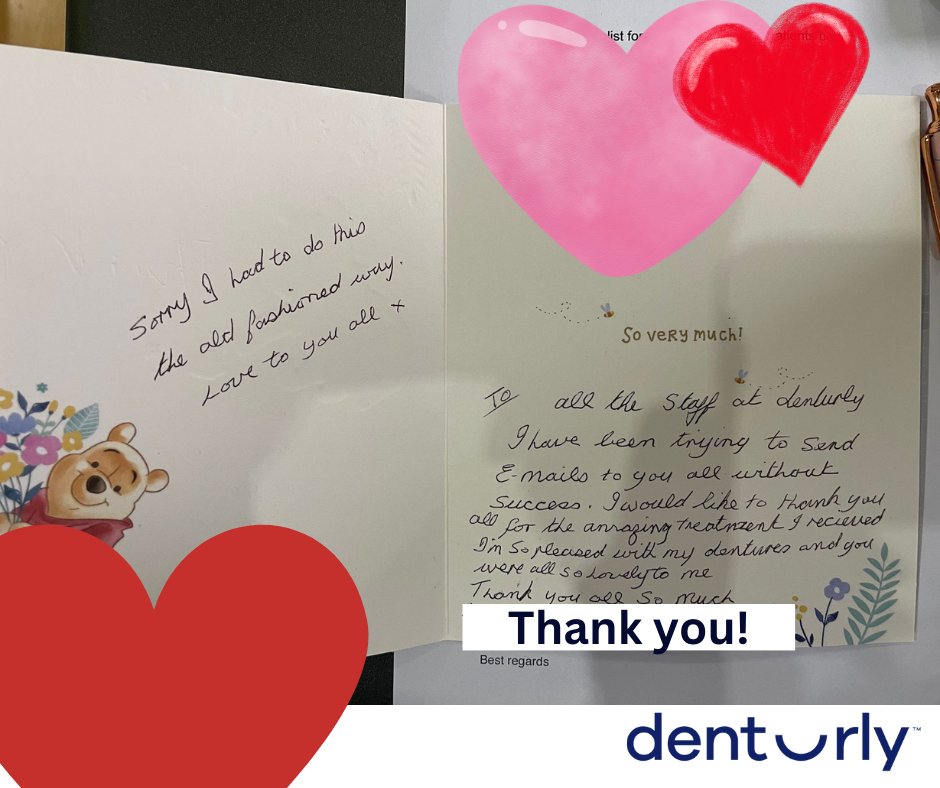 list for
atients
Sorry I had to do this
the old fashioned way.
Love to you all x
So very much!
To all the Staff at denturly
I have been trying to Send
E-mails to you all without
Success. I would like to thank you
all for the amazing treatment I recieved
I'm So pleased with my dentures and you
were all so Lovely to me
Thank you all So much
Thank you!
Best regards
denturly™